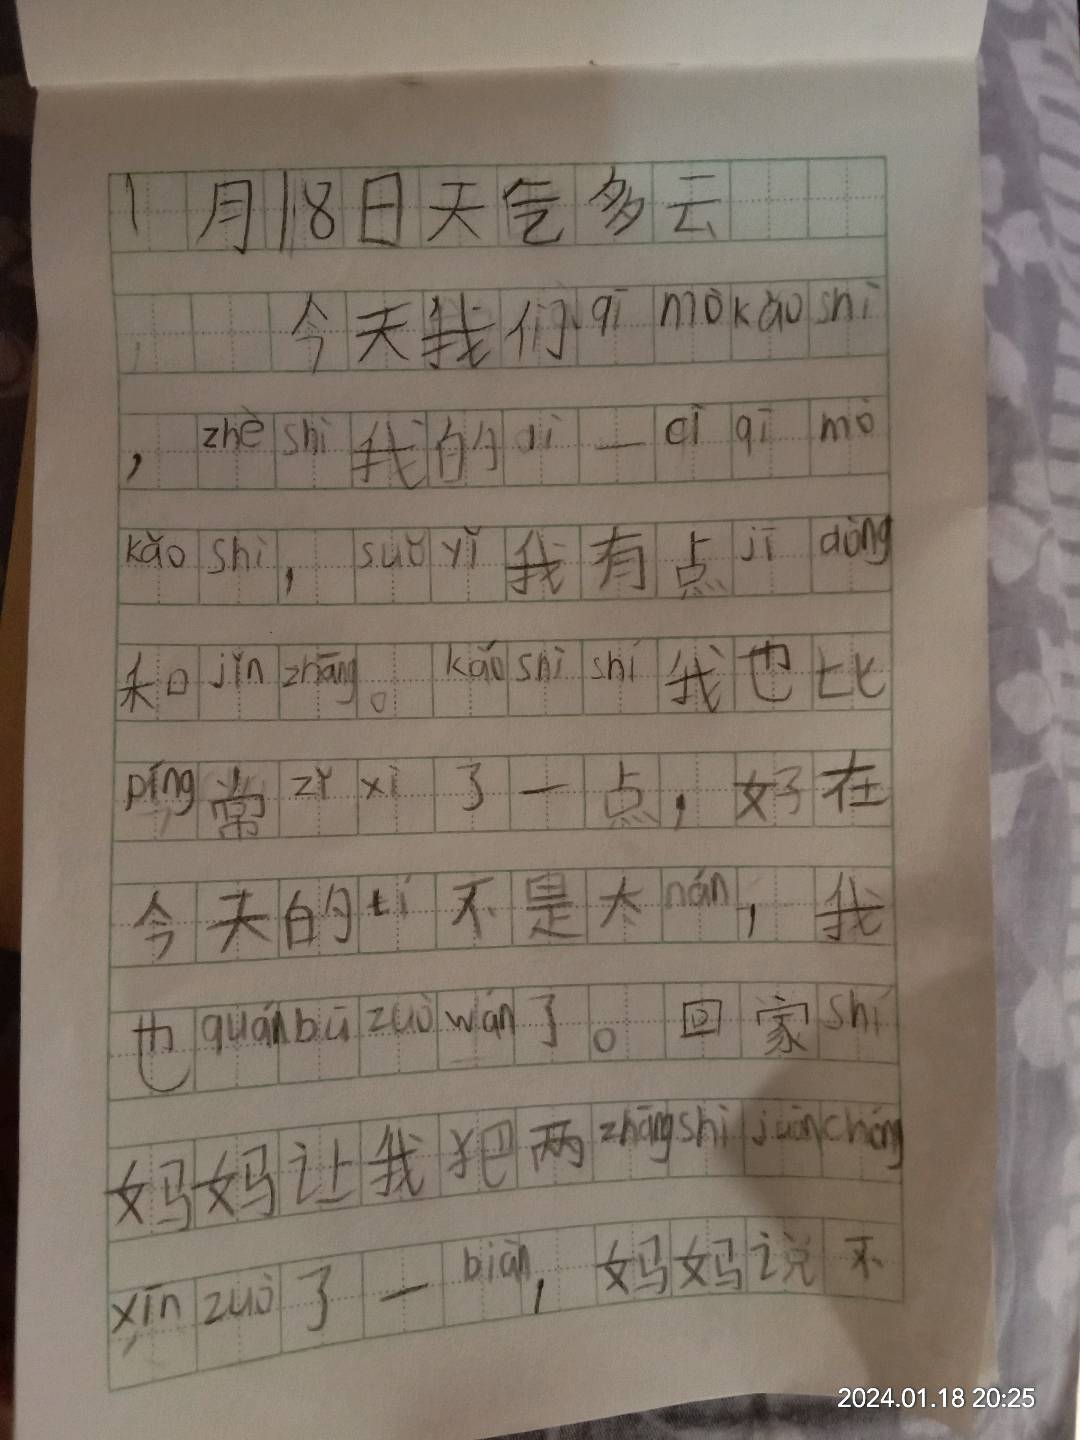 1月18日天气多云
今天我们qī mò kǎo shì
，zhè shì 我的 dì 一 cì qī mò
kǎo shì，suǒ yǐ 我有点 jī dòng
和 jǐn zhāng。kǎo shì shí 我也比
píng 常 zǐ xì 了一点，好在
今天的 tí 不是太 nán，我
也 quán bū zuò wán 了。回家 shí
妈妈让我把两 zhāng shì juàn chóng
xīn zuò 了一 biàn，妈妈说不
2024.01.18 20:25